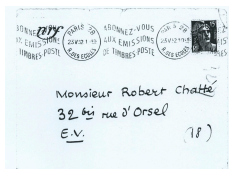 ABONNEZ-VOUS
AUX EMISSIONS
DE TIMBRES POSTE
PARIS
R. DES ECOLES
ABONNEZ-VOUS
AUX EMISSIONS
DE TIMBRES POSTE
R. DES ECOLES
Monsieur Robert Chatté
32 bis rue d'Orsel
E.V.
(18)